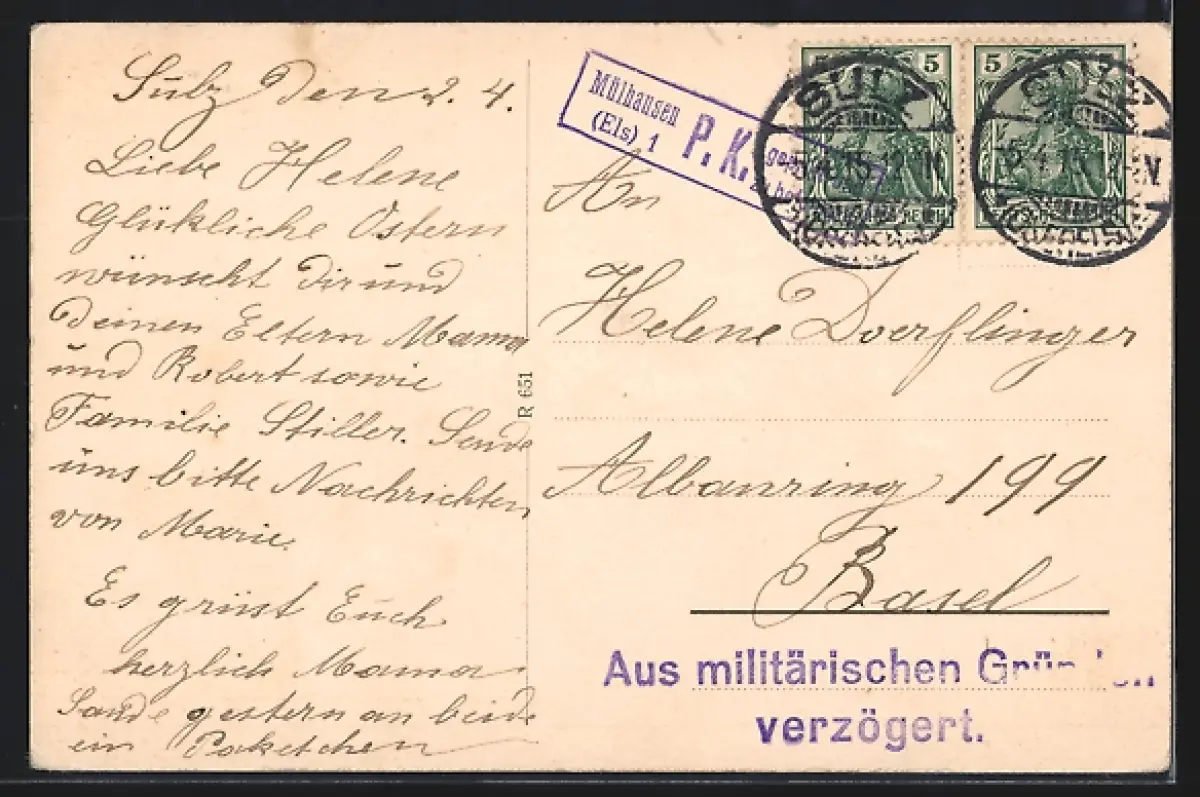 Sulz den 2. 4.
Liebe Helene
Glükliche Ostern
wünscht dir und
deinen Eltern Mama
und Robert sowie
Familie Stiller. Sende
uns bitte Nachrichten
von Marie.
Es grüst Euch
herzlich Mama
Sande gestern an beide
ein Paketchen
R 651
Mülhausen
(Els) 1
P. K.
5 5
SULZ
5.4.15.12-N.
DEUTSCHES REICH
5 5
SULZ
5.4.15.12-N.
DEUTSCHES REICH
An
Helene Doerflinger
Albanring 199
Basel
Aus militärischen Gründen
verzögert.